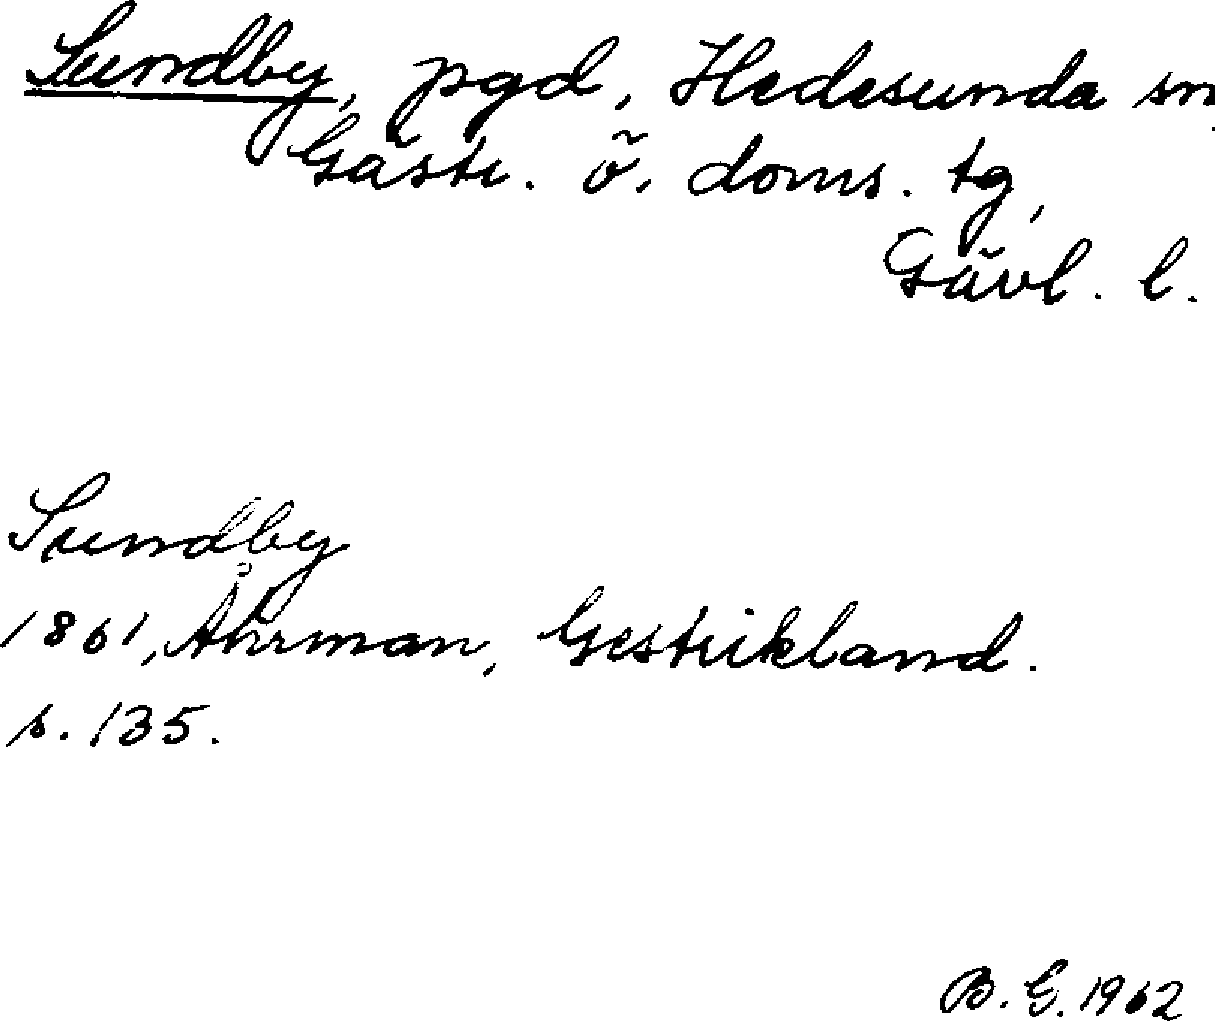 Sundby, pgd, Hedesunda sn,
Gästr. ö. doms. tg,
Gävl. l.
Sundby
1861, Åhrman, Gestrikland.
s. 135.
B. G. 1962